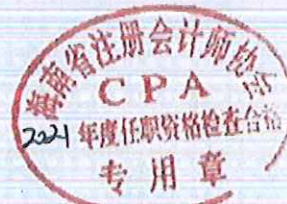 海南省注册会计师协会
CPA
2021年度任职资格检查合格
专用章